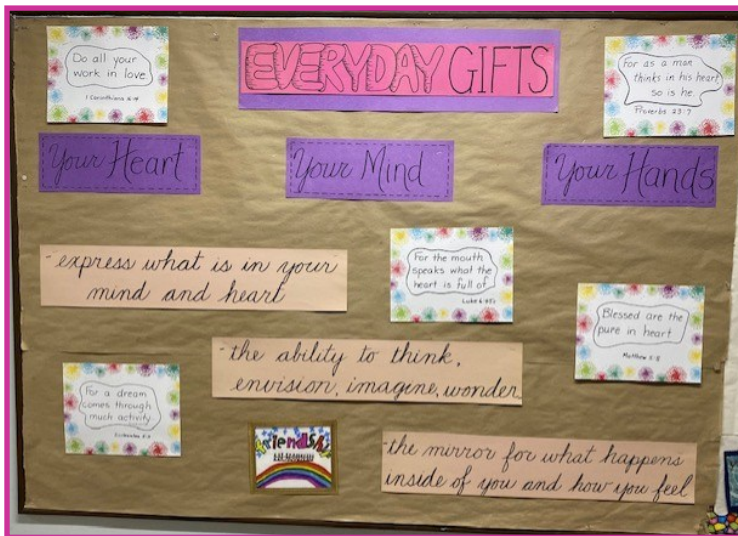 EVERYDAY GIFTS
Do all your
work in love.
1 Corinthians 16:14
For as a man
thinks in his heart,
so is he.
Proverbs 23:7
Your Heart
Your Mind
Your Hands
-express what is in your
mind and heart
For the mouth
speaks what the
heart is full of.
Luke 6:45
Blessed are the
pure in heart
Matthew 5:8
-the ability to think,
envision, imagine, wonder
For a dream
comes through
much activity.
-the mirror for what happens
inside of you and how you feel